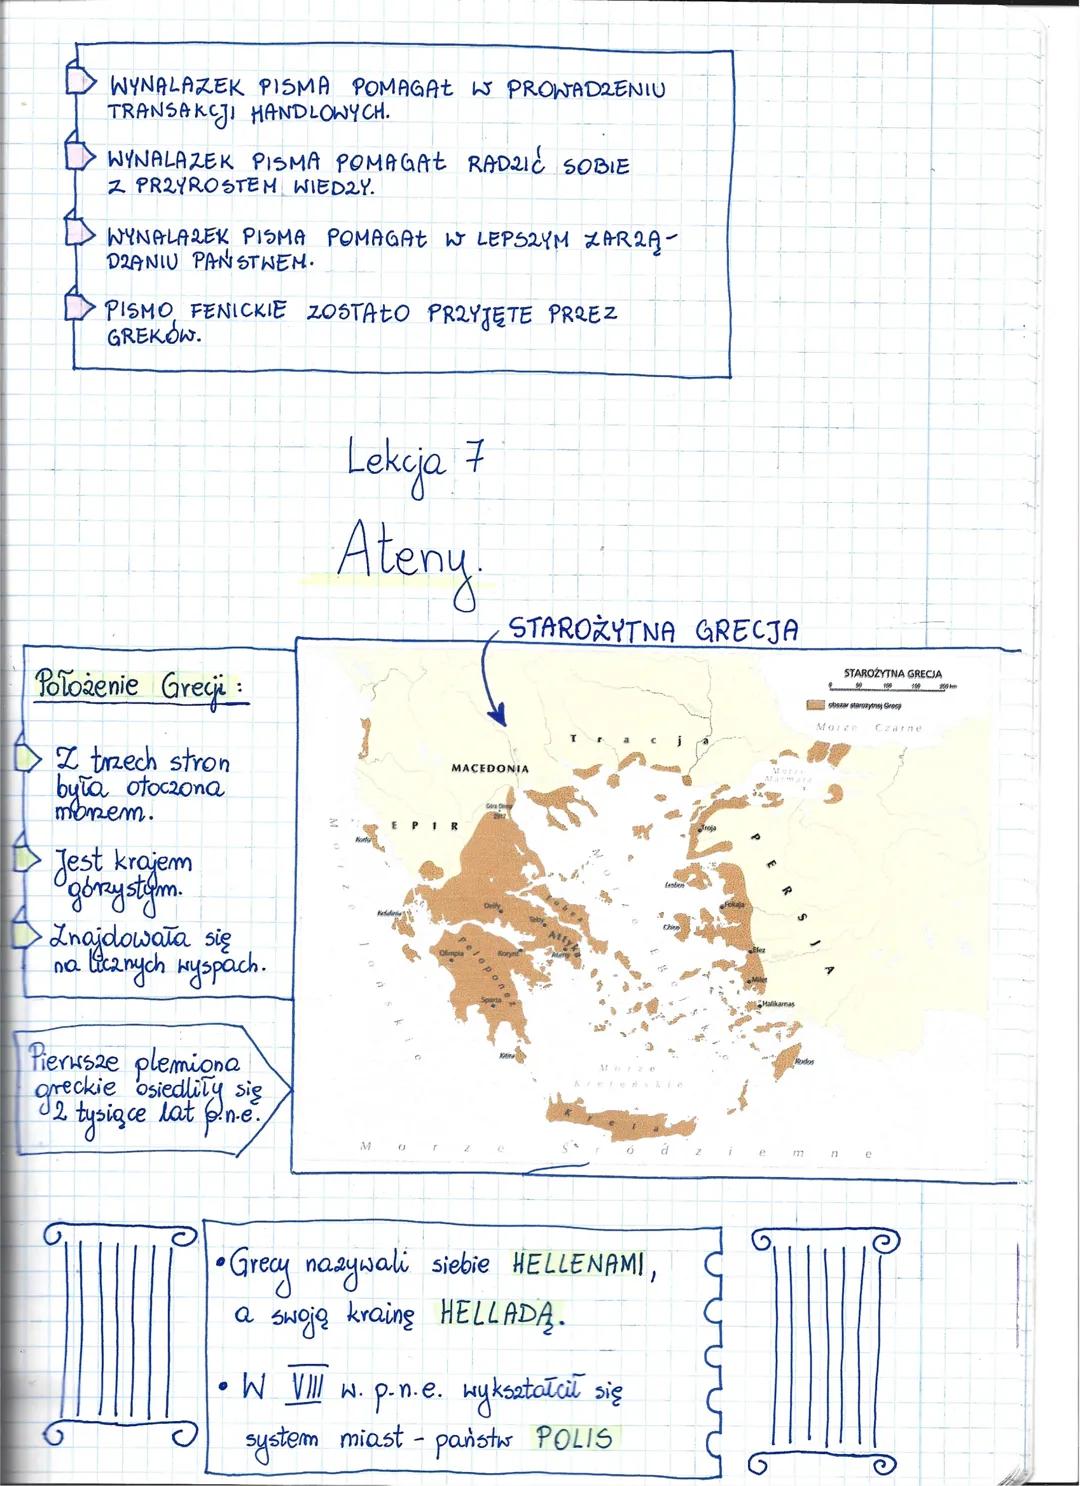 WYNALAZEK PISMA POMAGAŁ W PROWADZENIU
TRANSAKCJI HANDLOWYCH.
WYNALAZEK PISMA POMAGAŁ RADZIĆ SOBIE
Z PRZYROSTEM WIEDZY.
WYNALAZEK PISMA POMAGAŁ W LEPSZYM ZARZĄ-
DZANIU PAŃSTWEM.
PISMO FENICKIE ZOSTAŁO PRZYJĘTE PRZEZ
GREKÓW.
Lekcja 7
Ateny.
STAROŻYTNA GRECJA
Położenie Grecji:
Z trzech stron
była otoczona
morzem.
Jest krajem
górzystym.
Znajdowała się
na licznych wyspach.
Pierwsze plemiona
greckie osiedliły się
2 tysiące lat p.n.e.
STAROŻYTNA GRECJA
0 50 100 150 200 km
obszar starożytnej Grecji
Morze Czarne
Tracja
MACEDONIA
Morze
Marmara
Góra Olimp
2917
EPIR
Korfu
Troja
PERSJA
Lesbos
Fokaja
Chios
Kefalinia
Delfy
Teby
Eubea
Attyka
Ateny
Olimpia
Korynt
Peloponez
Sparta
Efez
Milet
Halikarnas
Kitira
Rodos
Morze Jońskie
Morze
Kreteńskie
Kreta
Morze Śródziemne
• Grecy nazywali siebie HELLENAMI,
a swoją krainę HELLADĄ.
• W VIII w. p.n.e. wykształcił się
system miast - państw POLIS